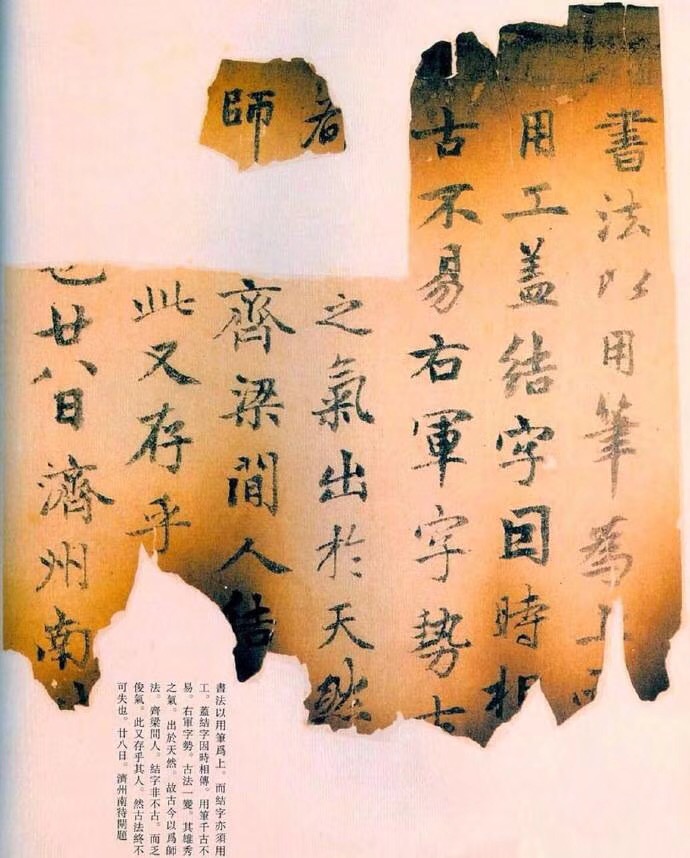 書法以用筆為上而
用工蓋結字因時相
古不易右軍字勢古
之氣出於天然
師齊梁間人結
此又存乎
也廿八日濟州南
書法以用筆爲上。而結字亦須用
工。蓋結字因時相傳。用筆千古不
易。右軍字勢。古法一變。其雄秀
之氣。出於天然。故古今以爲師
法。齊梁間人。結字非不古。而乏
俊氣。此又存乎其人。然古法終不
可失也。廿八日。濟州南待閘題